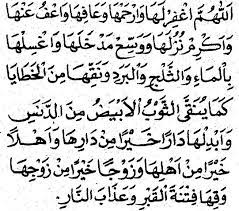 اَللّٰهُمَّ اغْفِرْ لَهَا وَارْحَمْهَا وَعَافِهَا وَاعْفُ عَنْهَا
وَاَكْرِمْ نُزُلَهَا وَوَسِّعْ مَدْخَلَهَا وَاغْسِلْهَا
بِالْمَاءِ وَالثَّلْجِ وَالْبَرَدِ وَنَقِّهَا مِنَ الْخَطَايَا
كَمَا يُنَقَّى الثَّوْبُ الْاَبْيَضُ مِنَ الدَّنَسِ
وَاَبْدِلْهَا دَارًا خَيْرًا مِنْ دَارِهَا وَاَهْلًا
خَيْرًا مِنْ اَهْلِهَا وَزَوْجًا خَيْرًا مِنْ زَوْجِهَا
وَقِهَا فِتْنَةَ الْقَبْرِ وَعَذَابَ النَّارِ.